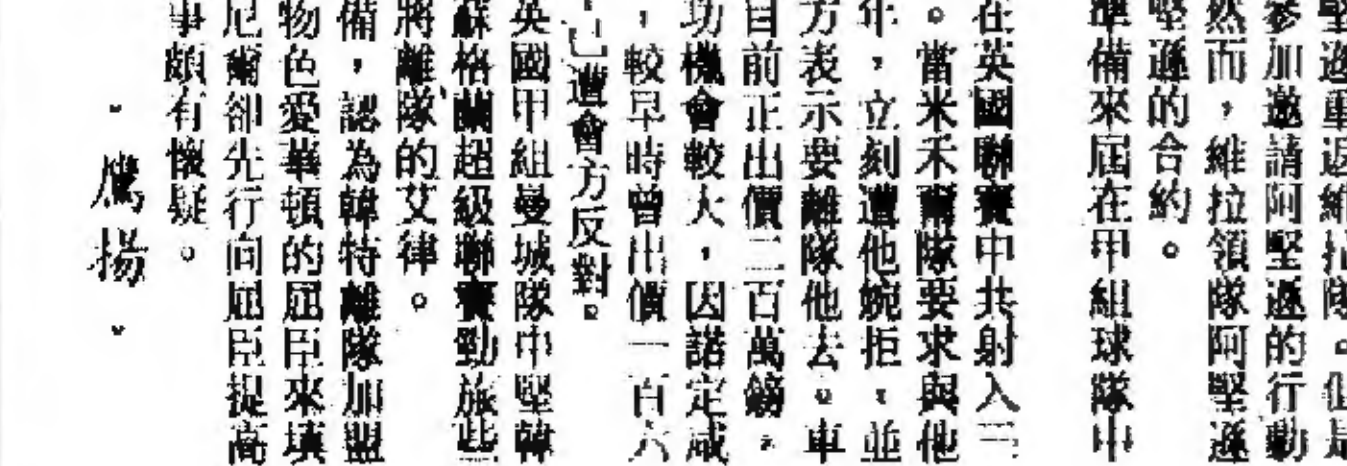 堅遜重返維拉隊。但是
參加邀請阿堅遜的行動
然而，維拉領隊阿堅遜
堅遜的合約。
準備來屆在甲組球隊中
在英國聯賽中共射入三
。當米禾爾隊要求與他
年，立刻遭他婉拒，並
方表示要離隊他去。車
目前正出價二百萬鎊，
功機會較大，因諾定咸
，較早時曾出價一百六
遭會方反對。
英國甲組曼城隊中堅韓
蘇格蘭超級聯賽勁旅些
將離隊的艾律。
備，認為韓特離隊加盟
物色愛華頓的屈臣來填
尼爾卻先行向屈臣提高
事頗有懷疑。
・鷹揚・